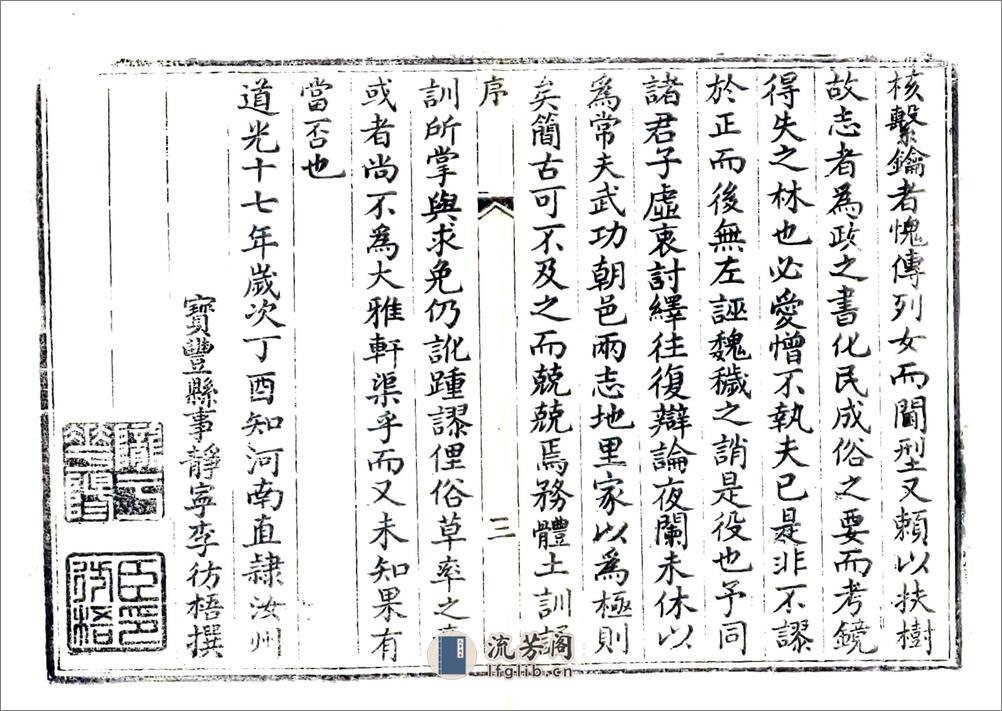 核繫鑰者愧傳列女而閫型又賴以扶樹
故志者為政之書化民成俗之要而考鏡
得失之林也必愛憎不執夫已是非不謬
於正而後無左誣魏穢之誚是役也予同
諸君子虛衷討繹往復辯論夜闌未休以
為常夫武功朝邑兩志地里家以為極則
矣簡古可不及之而兢兢焉務體土訓誦
序
三
訓所掌與求免仍訛踵謬俚俗草率之
或者尚不為大雅軒渠乎而又未知果有
當否也
道光十七年歲次丁酉知河南直隸汝州
寶豐縣事靜寧李彷梧撰
臣李彷梧
流芳閣
lfglib.cn